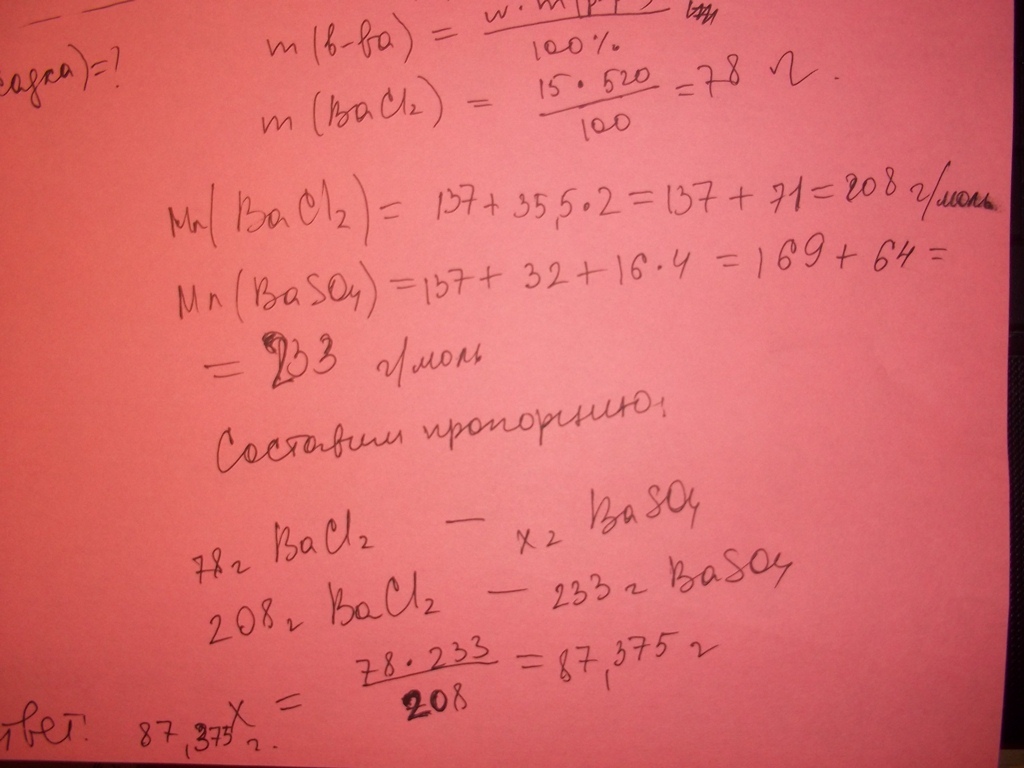 m (в-ва) = w · m(р-р) / 100%
садка) = ?
m (BaCl2) = 15 · 520 / 100 = 78 г.
Mr(BaCl2) = 137 + 35,5 · 2 = 137 + 71 = 208 г/моль
Mr(BaSO4) = 137 + 32 + 16 · 4 = 169 + 64 =
= 233 г/моль
Составим пропорцию:
78г BaCl2 — x г BaSO4
208г BaCl2 — 233 г BaSO4
x = 78 · 233 / 208 = 87,375 г
твет. 87,375 г.